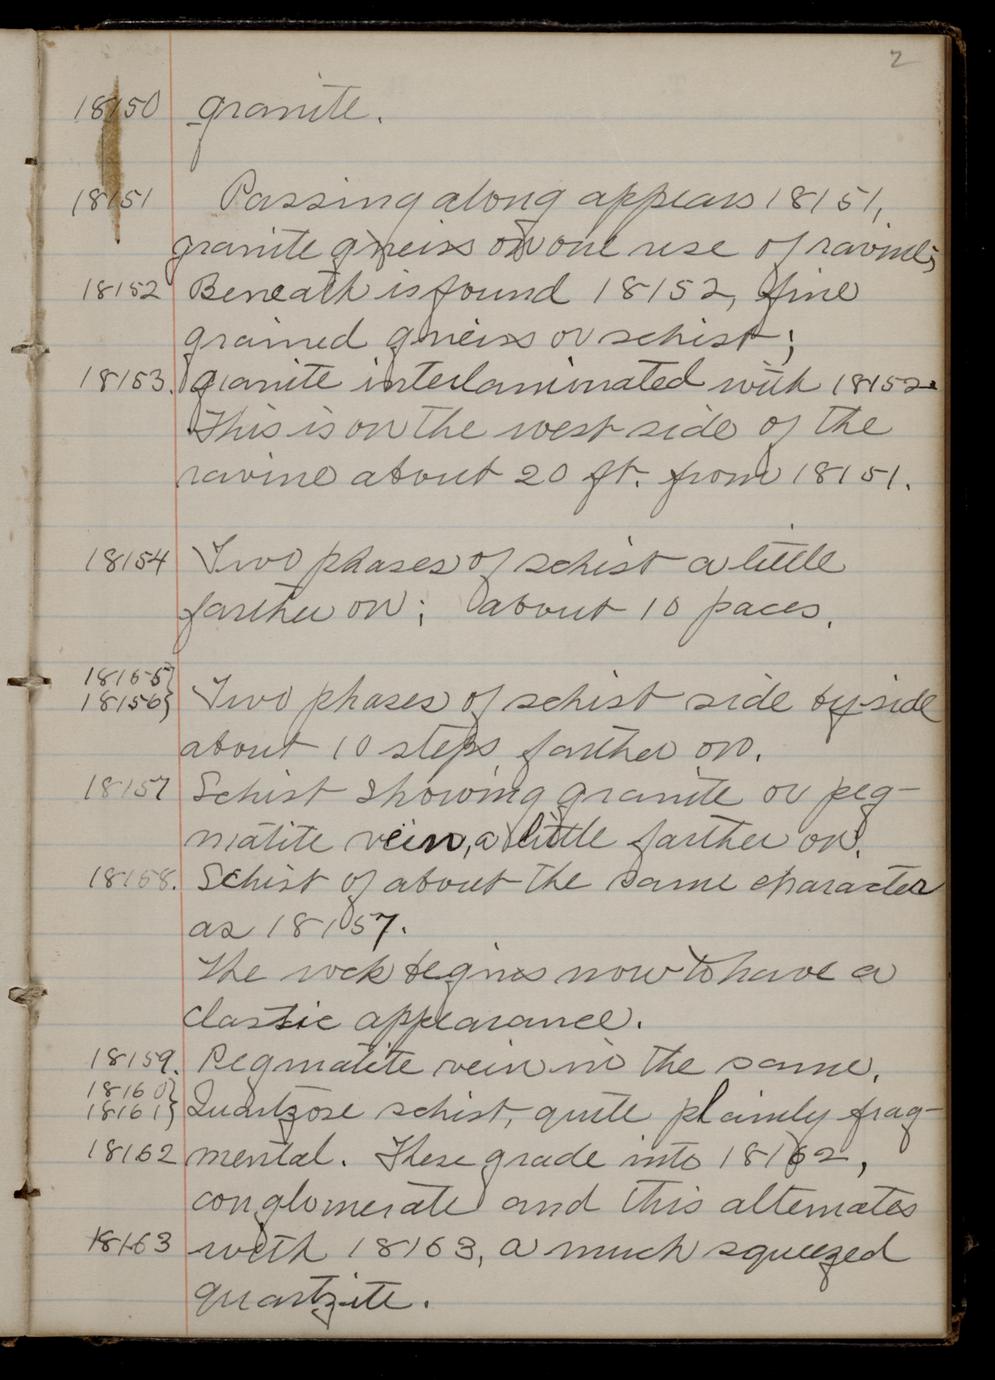 2
18150 granite.
18151 Passing along appears 18151,
granite gneiss on one rise of ravine;
18152 Beneath is found 18152, fine
grained gneiss or schist;
18153. granite interlaminated with 18152.
This is on the west side of the
ravine about 20 ft. from 18151.
18154 Two phases of schist a little
farther on; about 10 paces.
18155}
18156} Two phases of schist side by side
about 10 steps farther on.
18157 Schist showing granite or peg-
matite vein, a little farther on.
18158. Schist of about the same character
as 18157.
The rock begins now to have a
clastic appearance.
18159. Pegmatite vein in the same.
18160}
18161} Quartzose schist, quite plainly frag-
18162 mental. These grade into 18162,
conglomerate and this alternates
18163 with 18163, a much squeezed
quartzite.